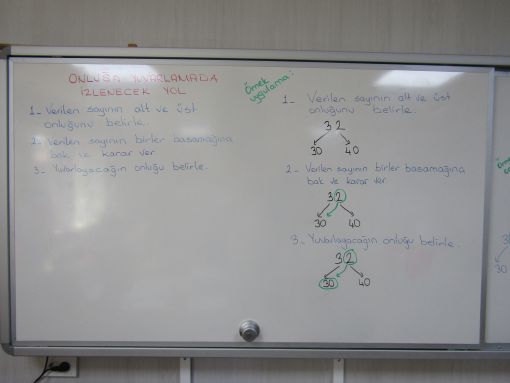 ONLUĞA YUVARLAMADA
İZLENECEK YOL
1- Verilen sayının alt ve üst
onluğunu belirle.
2- Verilen sayının birler basamağına
bak ve karar ver
3- Yuvarlayacağın onluğu belirle.
Örnek
uygulama:
1- Verilen sayının alt ve üst
onluğunu belirle.
32
30 40
2- Verilen sayının birler basamağına
bak ve karar ver
32
30 40
3- Yuvarlayacağın onluğu belirle.
32
30 40
30